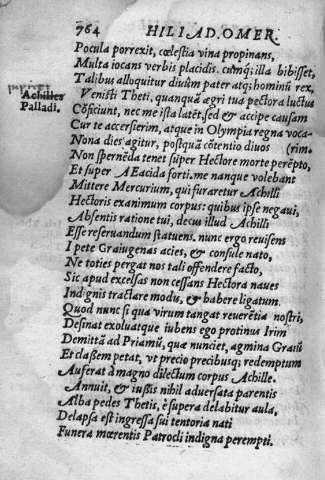 764 HILIAD. OMER.
Pocula porrexit, cœlestia vina propinans,
Multa iocans verbis placidis. cumq́; illa bibisset,
Talibus alloquitur diuûm pater atq; hominū rex,
Achilles
Palladi.
Venisti Theti, quanquā ægri tua pectora luctus
Cōficiunt, nec me ista latēt, sed & accipe causam
Cur te accersierim, atque in Olympia regna voca-
Nona dies agitur, postquā cōtentio diuos (rim.
Non spernēda tenet super Hectore morte perēpto,
Et super AEacida forti. me nanque volebant
Mittere Mercurium, qui furaretur Achilli
Hectoris exanimum corpus: quibus ipse negaui,
Absentis ratione tui, decus illud Achilli
Esse reseruandum statuens. nunc ergo reuisens
I pete Graiugenas acies, & consule nato,
Ne toties pergat nos tali offendere facto,
Sic apud excelsas non cessans Hectora naues
Indignis tractare modis, & habere ligatum.
Quod nunc si qua virum tangat reuerētia nostri,
Desinat exoluatque iubens ego protinus Irim
Demittā ad Priamū, quæ nunciet, agmina Graiû
Et classem petat, vt precio precibusq; redemptum
Auferat à magno dilectum corpus Achille.
Annuit, & iussis nihil aduersata parentis
Alba pedes Thetis, è supera delabitur aula,
Delapsa est ingressa sui tentoria nati
Funera mœrentis Patrocli indigna perempti.